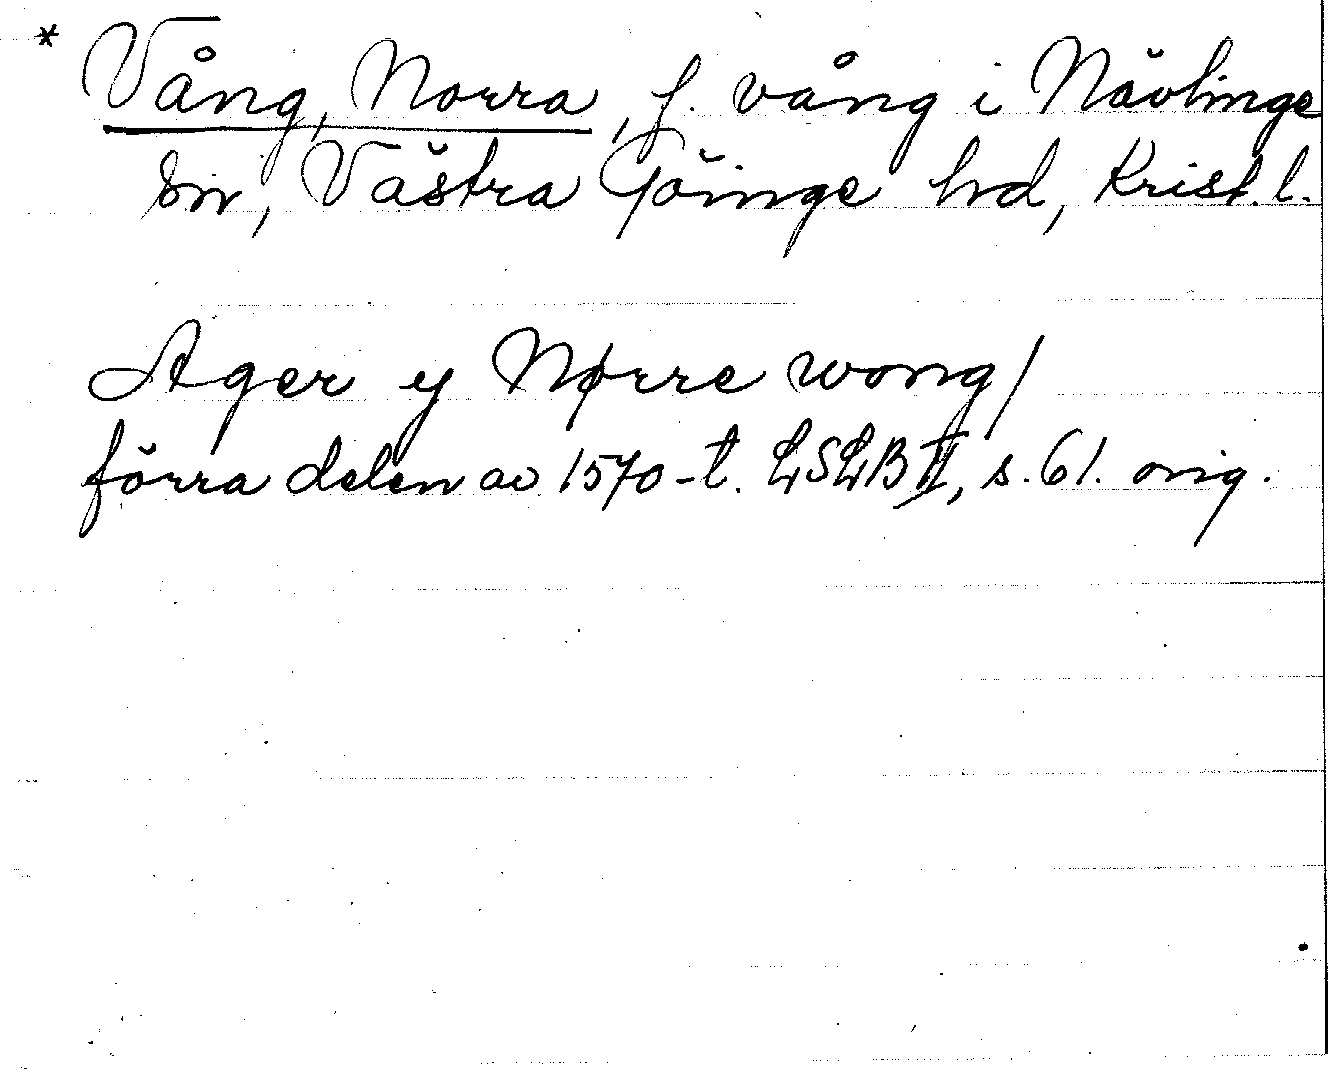 * Vång, Norra, f. vång i Nävlinge
sn, Västra Göinge hd, Krist. l.
Ager y Nørre wong/
förra delen av 1570-t. LSLB II, s. 61. orig.